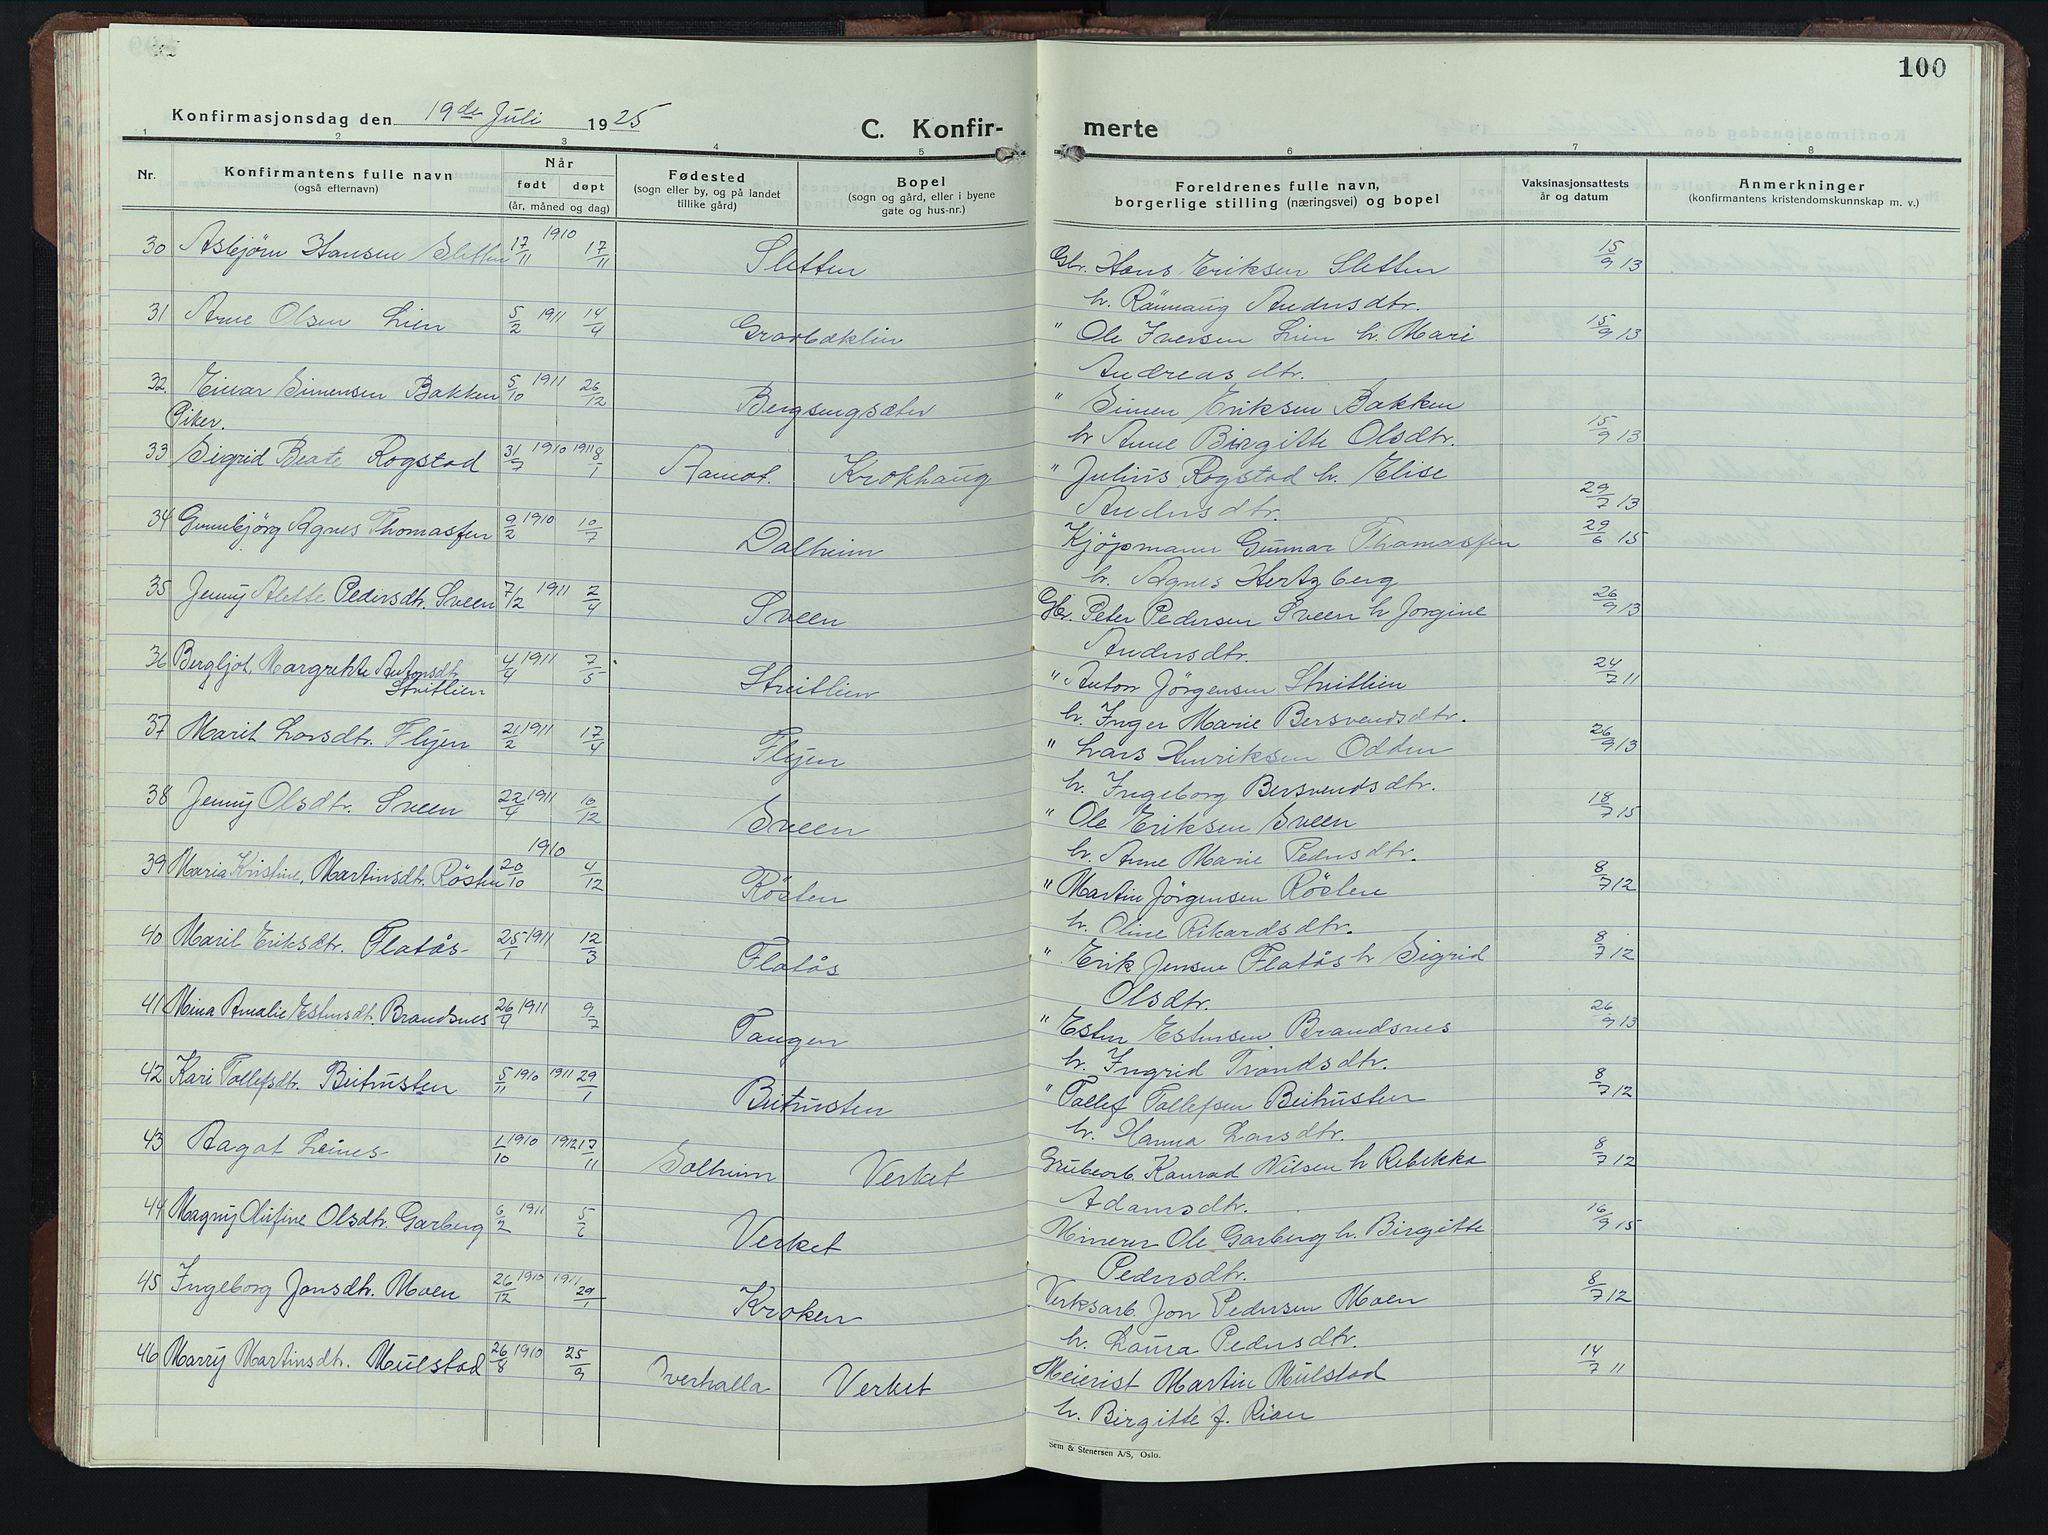 100
Konfirmasjonsdag den 19de Juli 1925
C. Konfir-
merte
1 2 3 4 5 6 7 8
Nr.
Konfirmantens fulle navn
(også efternavn)
Når
født døpt
(år, måned og dag)
Fødested
(sogn eller by, og på landet
tillike gård)
Bopel
(sogn og gård, eller i byene
gate og hus-nr.)
Foreldrenes fulle navn,
borgerlige stilling (næringsvei) og bopel
Vaksinasjonsattests
år og datum
Anmerkninger
(konfirmantens kristendomskunnskap m. v.)
30 Asbjørn Hansen Sletten 17/11 1910 17/11 Sletten Gbr. Hans Eriksen Sletten 15/9 13
h. Rönnaug Andersdtr.
31 Arne Olsen Lien 5/2 1911 14/4 Gravbæklien " Ole Iversen Lien h. Mari 15/9 13
Andreasdtr.
32. Einar Simensen Bakken 5/10 1911 26/12 Bergsengsæter " Simen Eriksen Bakken
Piker.
h Anne Birgitte Olsdtr. 15/9 13
33 Sigrid Beate Rogstad 31/7 1910 1911 8/1 Aamot. Krokhaug " Julius Rogstad h. Elise
Andersdtr. 29/7 13
34 Gunnbjörg Agnes Thomassen 9/2 1910 10/7 Dalheim Kjöpmann Gunnar Thomassen 29/6 15
h. Agnes Hertzberg
35 Jenny Alette Pedersdtr. Sveen 7/12 1911 2/4 Sveen Gbr. Peter Pedersen Sveen h Jorgine 26/9 13
Andersdtr.
36 Bergljot Margrethe Antonsdtr.
Streitlien 4/4 1911 7/5 Streitlien " Anton Jörgensen Streitlien 24/7 11
h. Inger Marie Bersvendsdtr.
37 Marit Larsdtr. Flyen 21/2 1911 17/4 Flyen " Lars Henriksen Odden 26/9 13
h. Ingeborg Bersvendsdtr.
38 Jenny Olsdtr. Sveen 22/4 1911 10/12 Sveen " Ole Eriksen Sveen 18/7 15
h. Anne Marie Pedersdtr.
39 Maria Kristine, Martinsdtr. Rösten 20/10 1910 4/12 Rösten " Martin Jörgensen Rösten 8/7 12
h. Oline Rikardsdtr.
40 Marit Eriksdtr. Flatås 25/1 1911 12/3 Flatås " Erik Jensen Flatås h Sigrid 8/7 12
Olsdtr.
41 Mina Amalie Estensdtr. Brandsnes 26/4 1911 9/7 Tangen " Esten Estensen Brandsnes 26/9 13
h. Ingrid Trondsdtr.
42 Kari Tollefsdtr. Beitrusten 5/11 1910 1911 29/1 Beitrusten " Tollef Tollefsen Beitrusten 8/7 12
h. Hanna Larsdtr.
43 Aagot Leines 1/10 1910 1912 17/11 Solheim Verket Grubearb. Konrad Nilsen h Rebekka 8/7 12
Adamsdtr.
44 Magny Olufine Olsdtr. Garberg 6/2 1911 5/6 Verket Minerer Ole Garberg h. Birgitte 16/9 15
Pedersdtr.
45 Ingeborg Jonsdtr. Moen 26/12 1910 1911 29/1 Kroken Verksarb. Jon Pedersen Moen 8/7 12
h. Laura Pedersdtr.
46 Marry Martinsdtr. Mülstad 26/8 1910 25/9 Inverhalla Verket Meierist Martin Mülstad 14/7 11
h. Birgitte f. Rian
Sem & Stenersen A/S, Oslo.